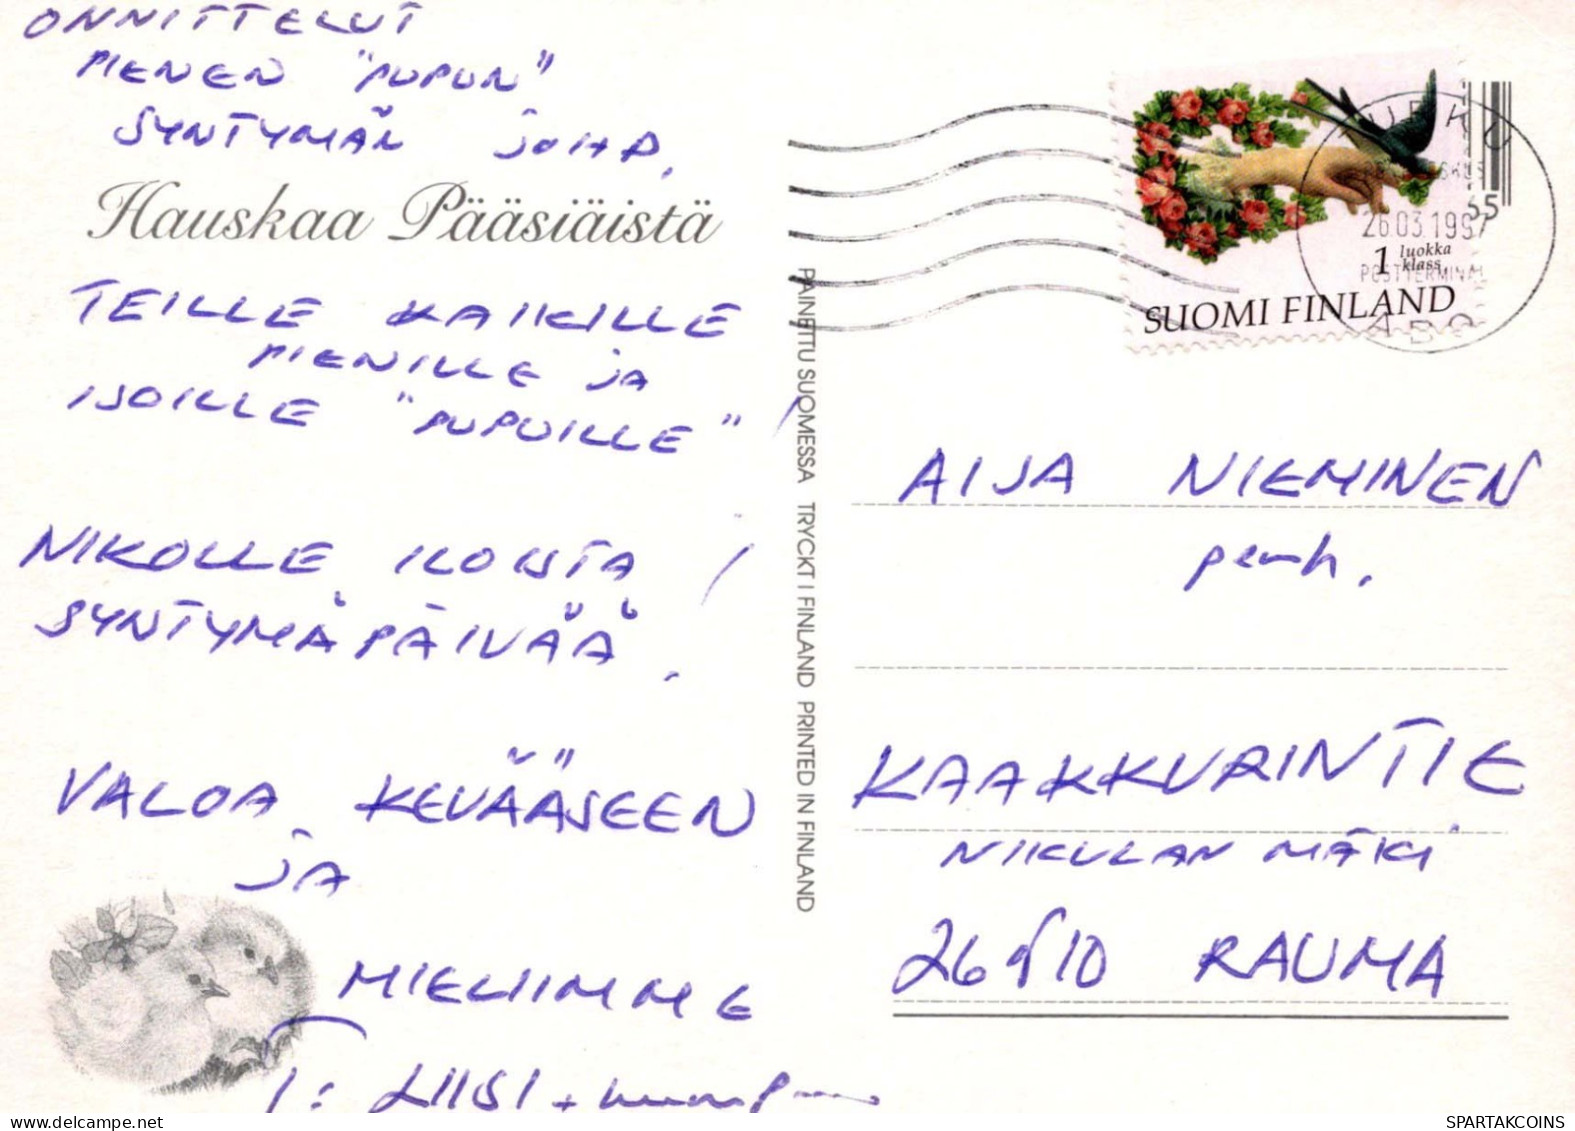 ONNITTELUT
PIENEN "PUPUN"
SYNTYMÄN JOHD.
Hauskaa Pääsiäistä
TEILLE KAIKILLE
PIENILLE JA
ISOILLE "PUPUILLE"!
NIKOLLE ILOISTA
SYNTYMÄPÄIVÄÄ!
VALOA KEVÄÄSEEN
JA
MIELIIMME
T: LIISI +
PAINETTU SUOMESSA TRYCKT I FINLAND PRINTED IN FINLAND
TURKU
26.03.1997
POSTTERMINAL
ÅBO
1 luokka
klass
SUOMI FINLAND
AIJA NIEMINEN
perh.
KAAKKURINTIE
NIKULAN MÄKI
26910 RAUMA
SPARTAKCOINS